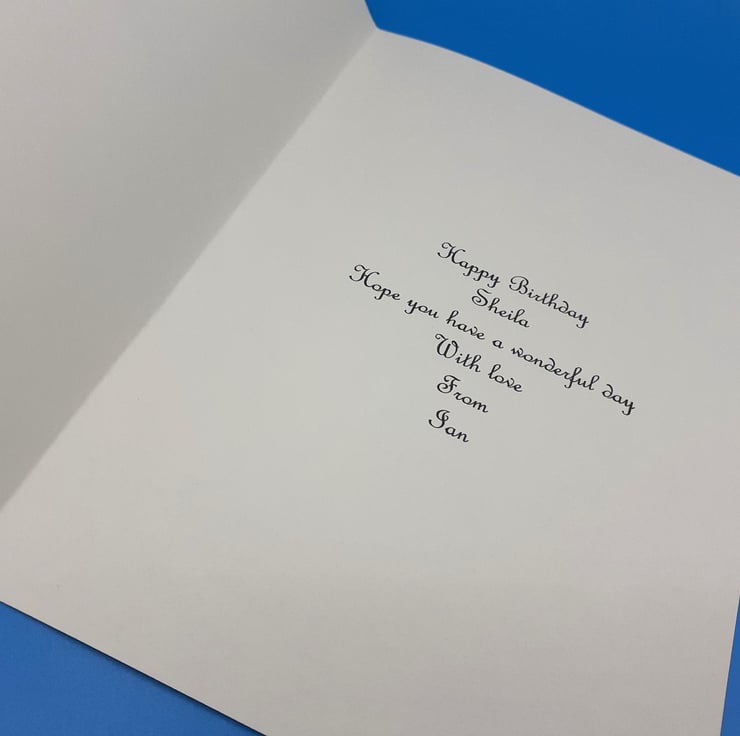 Happy Birthday
Sheila
Hope you have a wonderful day
With love
From
Ian